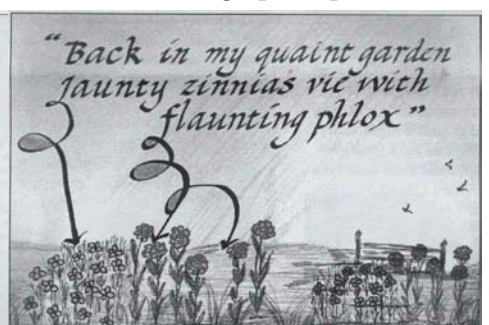 “Back in my quaint garden
jaunty zinnias vie with
flaunting phlox”